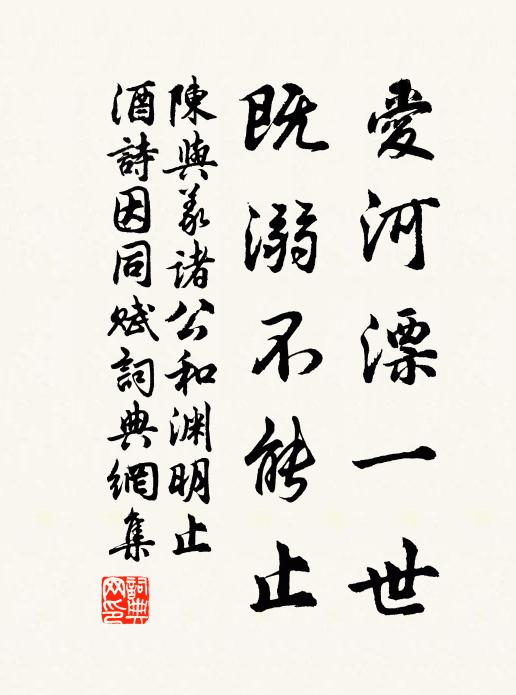 愛河漂一世
既溺不能止
陳與義諸公和渊明止
酒詩因同賦詞典網集
詞典網印